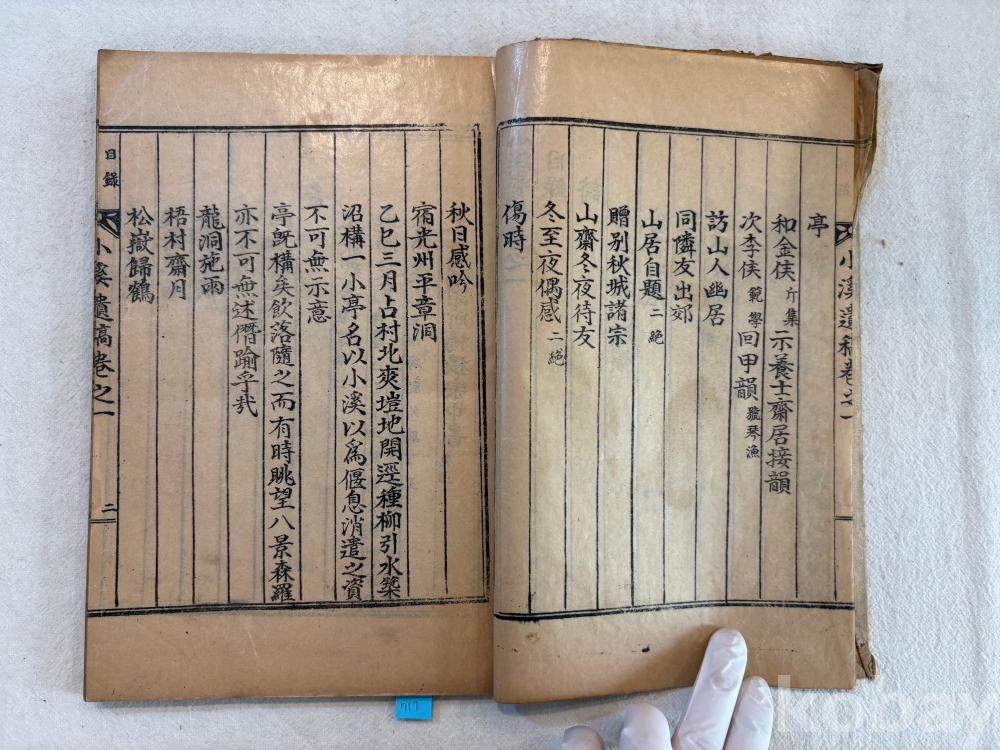 小溪遺稿卷之一
亭
和金俟斤集示養士齋居接韻
次李俟範學回甲韻號琴漁
訪山人幽居
同憐友出郊
山居自題二絶
贈別秋城諸宗
山齋冬夜待友
冬至夜偶感二絶
傷時
秋日感吟
宿光州平章洞
乙巳三月占村北爽塏地開逕種柳引水築
沼構一小亭名以小溪以爲偃息消遣之資
不可無示意
亭旣構矣飮落隨之而有時眺望八景森羅
亦不可無述僭踰乎哉
龍洞施雨
梧村齋月
松嶽歸鶴
目錄
小溪遺稿卷之一
二
717
kobay